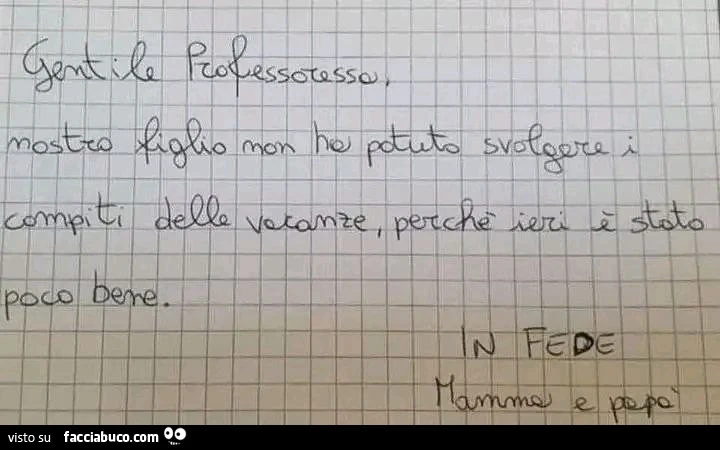 Gentile Professoressa,
nostro figlio non ha potuto svolgere i
compiti delle vacanze, perché ieri è stato
poco bene.
IN FEDE
Mamma e papà
visto su facciabuco.com